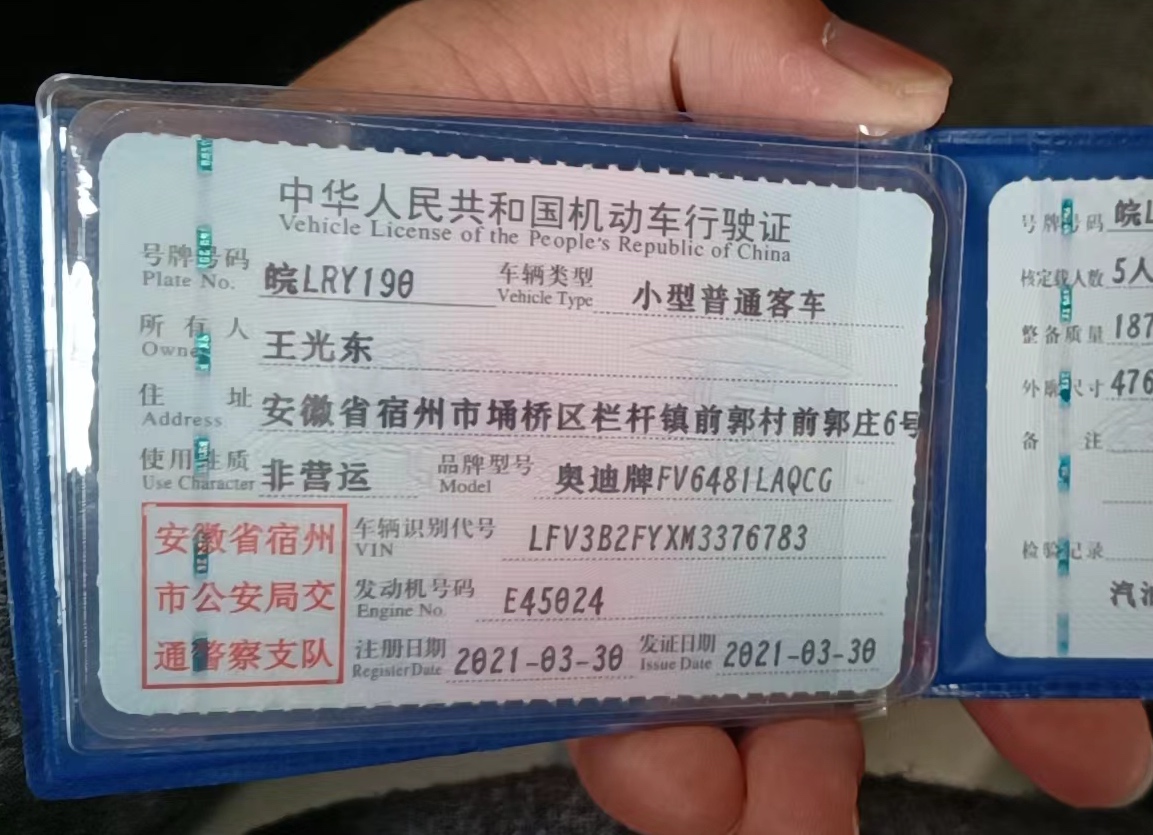 中华人民共和国机动车行驶证
Vehicle License of the People's Republic of China
号牌号码 皖LRY190 车辆类型 小型普通客车
Plate No. Vehicle Type
所有人 王光东
Owner
住址 安徽省宿州市埇桥区栏杆镇前郭村前郭庄6号
Address
使用性质 非营运 品牌型号 奥迪牌FV6481LAQCG
Use Character Model
安徽省宿州
市公安局交
通警察支队
车辆识别代号 LFV3B2FYXM3376783
VIN
发动机号码 E45024
Engine No.
注册日期 2021-03-30 发证日期 2021-03-30
Register Date Issue Date
号牌号码 皖L
核定载人数 5人
整备质量 187
外廓尺寸 476
备注
检验记录
汽油